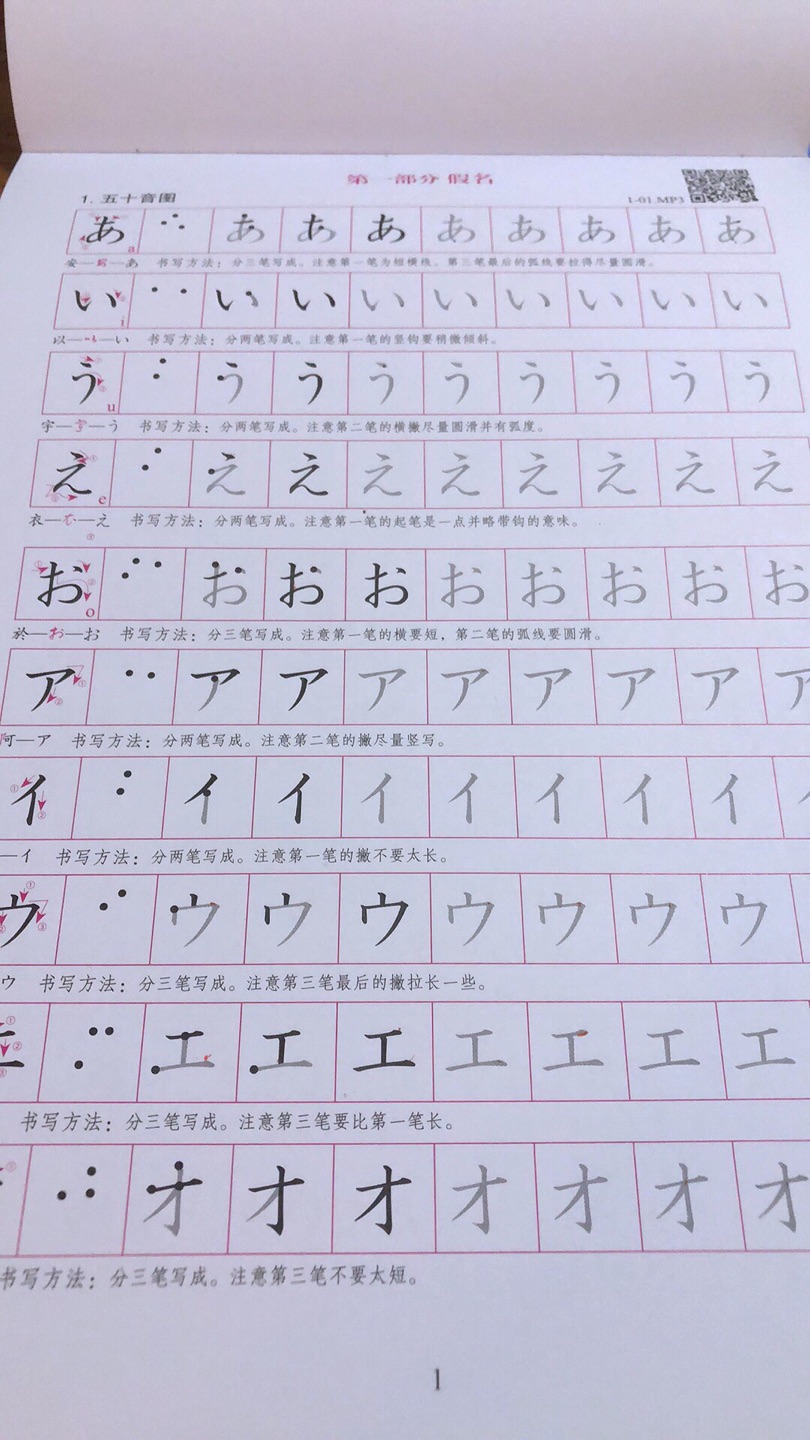 第一部分 假名
1. 五十音图 1-01.MP3
あ a あ あ あ あ あ あ あ あ
安——あ 书写方法：分三笔写成。注意第一笔为短横线。第三笔最后的弧线要拉得尽量圆滑。
い i い い い い い い い い
以——い 书写方法：分两笔写成。注意第一笔的竖钩要稍微倾斜。
う u う う う う う う う う
宇——う 书写方法：分两笔写成。注意第二笔的横撇尽量圆滑并有弧度。
え e え え え え え え え え
衣——え 书写方法：分两笔写成。注意第一笔的起笔是一点并略带钩的意味。
お o お お お お お お お お
於—お—お 书写方法：分三笔写成。注意第一笔的横要短，第二笔的弧线要圆滑。
ア ① ② ア ア ア ア ア ア ア ア
阿—ア 书写方法：分两笔写成。注意第二笔的撇尽量竖写。
イ ① ② イ イ イ イ イ イ イ イ
—イ 书写方法：分两笔写成。注意第一笔的撇不要太长。
ウ ① ② ③ ウ ウ ウ ウ ウ ウ ウ
ウ 书写方法：分三笔写成。注意第三笔最后的撇拉长一些。
エ ① ② ③ エ エ エ エ エ エ エ
书写方法：分三笔写成。注意第三笔要比第一笔长。
オ オ オ オ オ オ オ
书写方法：分三笔写成。注意第三笔不要太短。
1